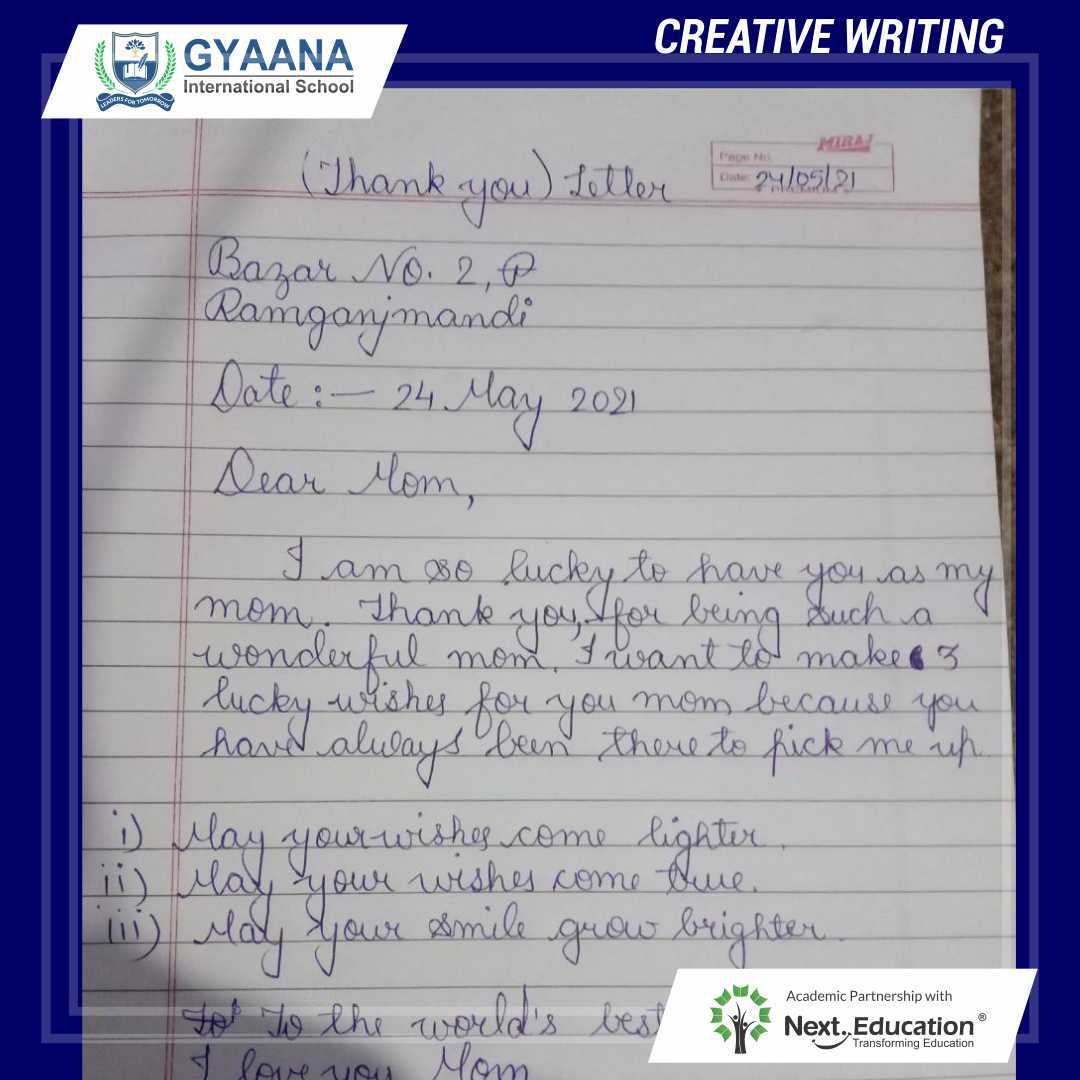 GYAANA
International School
LEADERS FOR TOMORROW
CREATIVE WRITING
MIRAJ
Page No.
Date: 24/05/21
(Thank you) Letter
Bazar No. 2, P
Ramganjmandi
Date :- 24 May 2021
Dear Mom,
I am so lucky to have you as my
mom. Thank you, for being such a
wonderful mom. I want to make 3
lucky wishes for you mom because you
have always been there to pick me up.
i) May your wishes come lighter.
ii) May your wishes come true.
iii) May your smile grow brighter.
To the world's best
I love you Mom
Academic Partnership with
Next Education®
Transforming Education